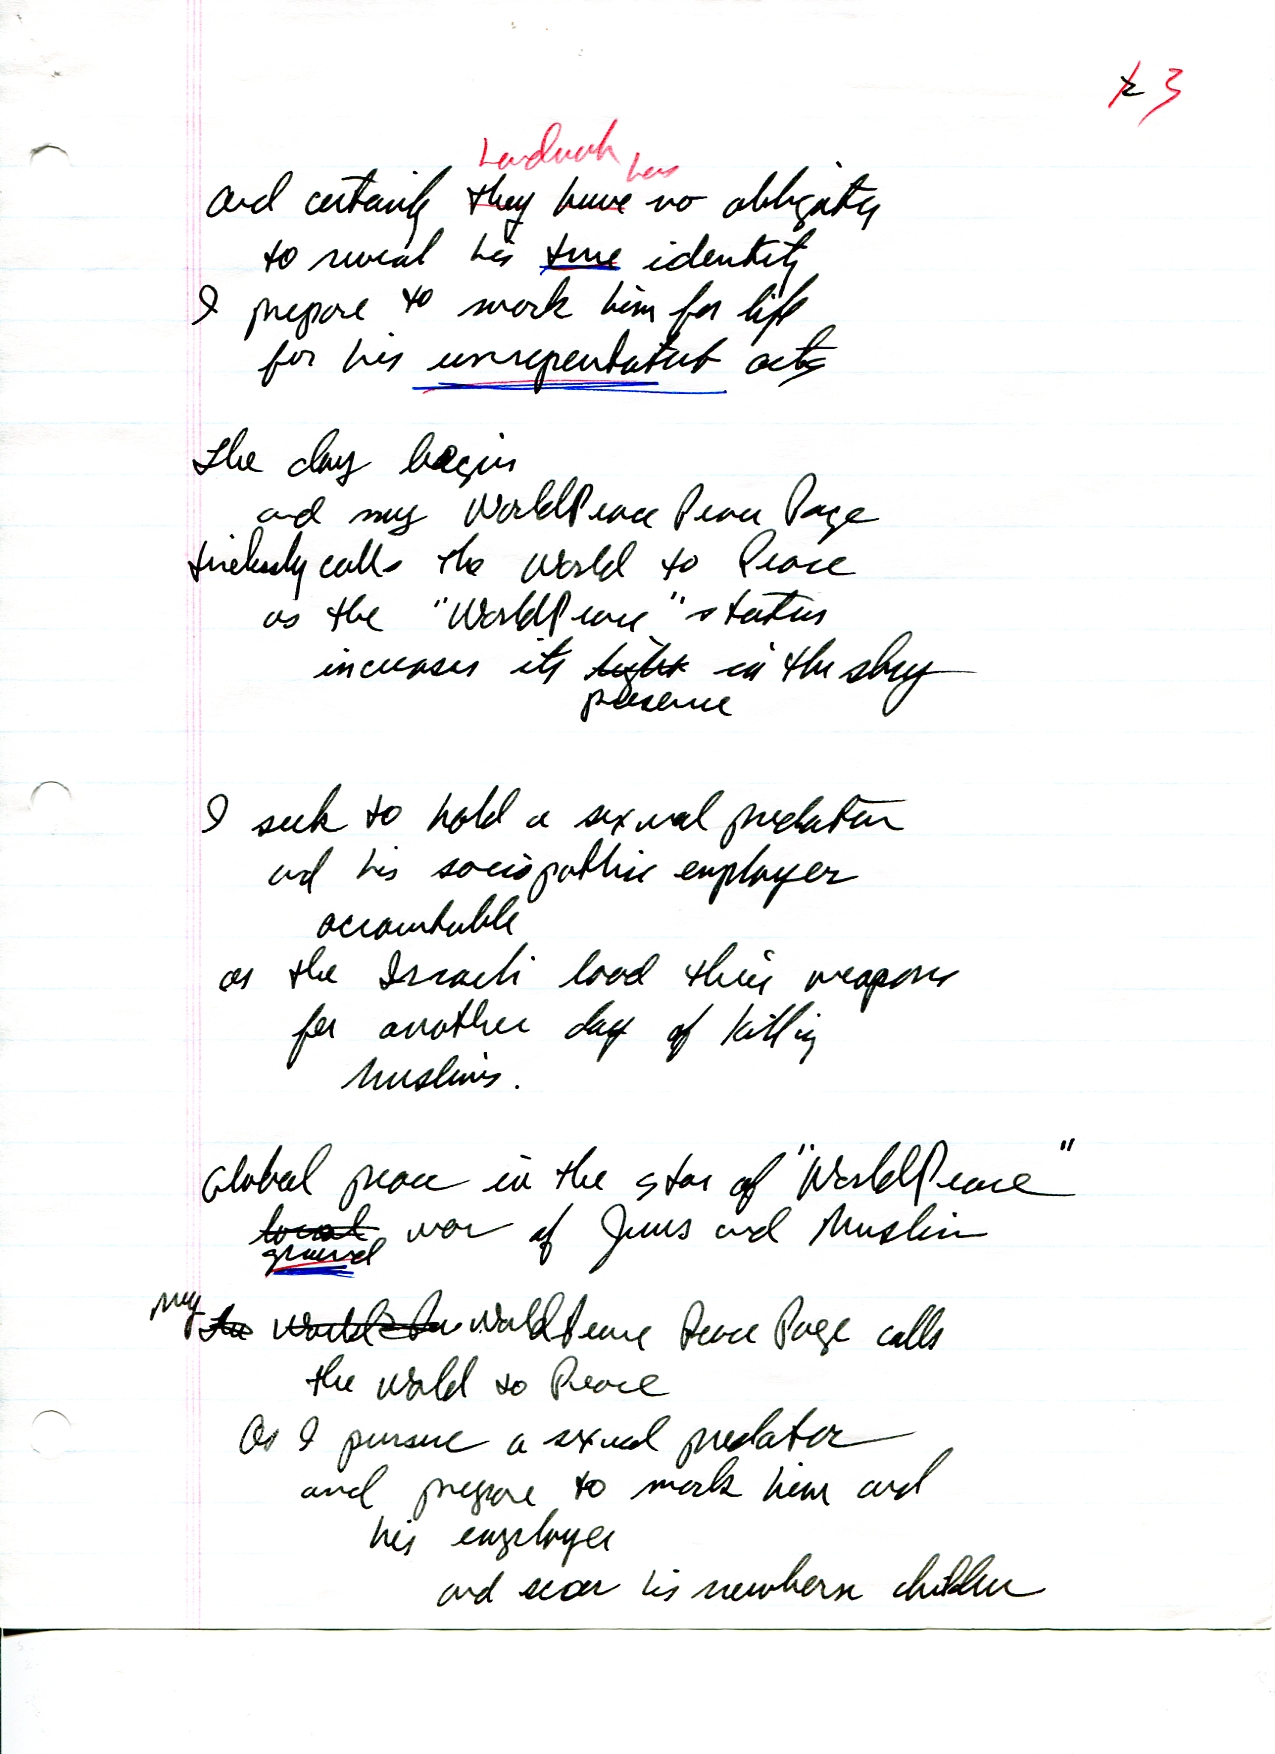 2 3
Landmark has
and certainly they have no obligation
to reveal his true identity
I prepare to mark him for life
for his unrepentatnt acts
The day begins
and my WorldPeace Peace Page
tirelessly calls the World to Peace
as the "WorldPeace" status
increases its light in the sky
presence
I seek to hold a sexual predator
and his sociopathic employer
accountable
as the Israeli load their weapons
for another day of killing
Muslims.
Global peace in the star of "WorldPeace"
local war of Jews and Muslim
ground
my the World Pea WorldPeace Peace Page calls
the World to Peace
As I pursue a sexual predator
and prepare to mark him and
his employer
and scar his newborn children